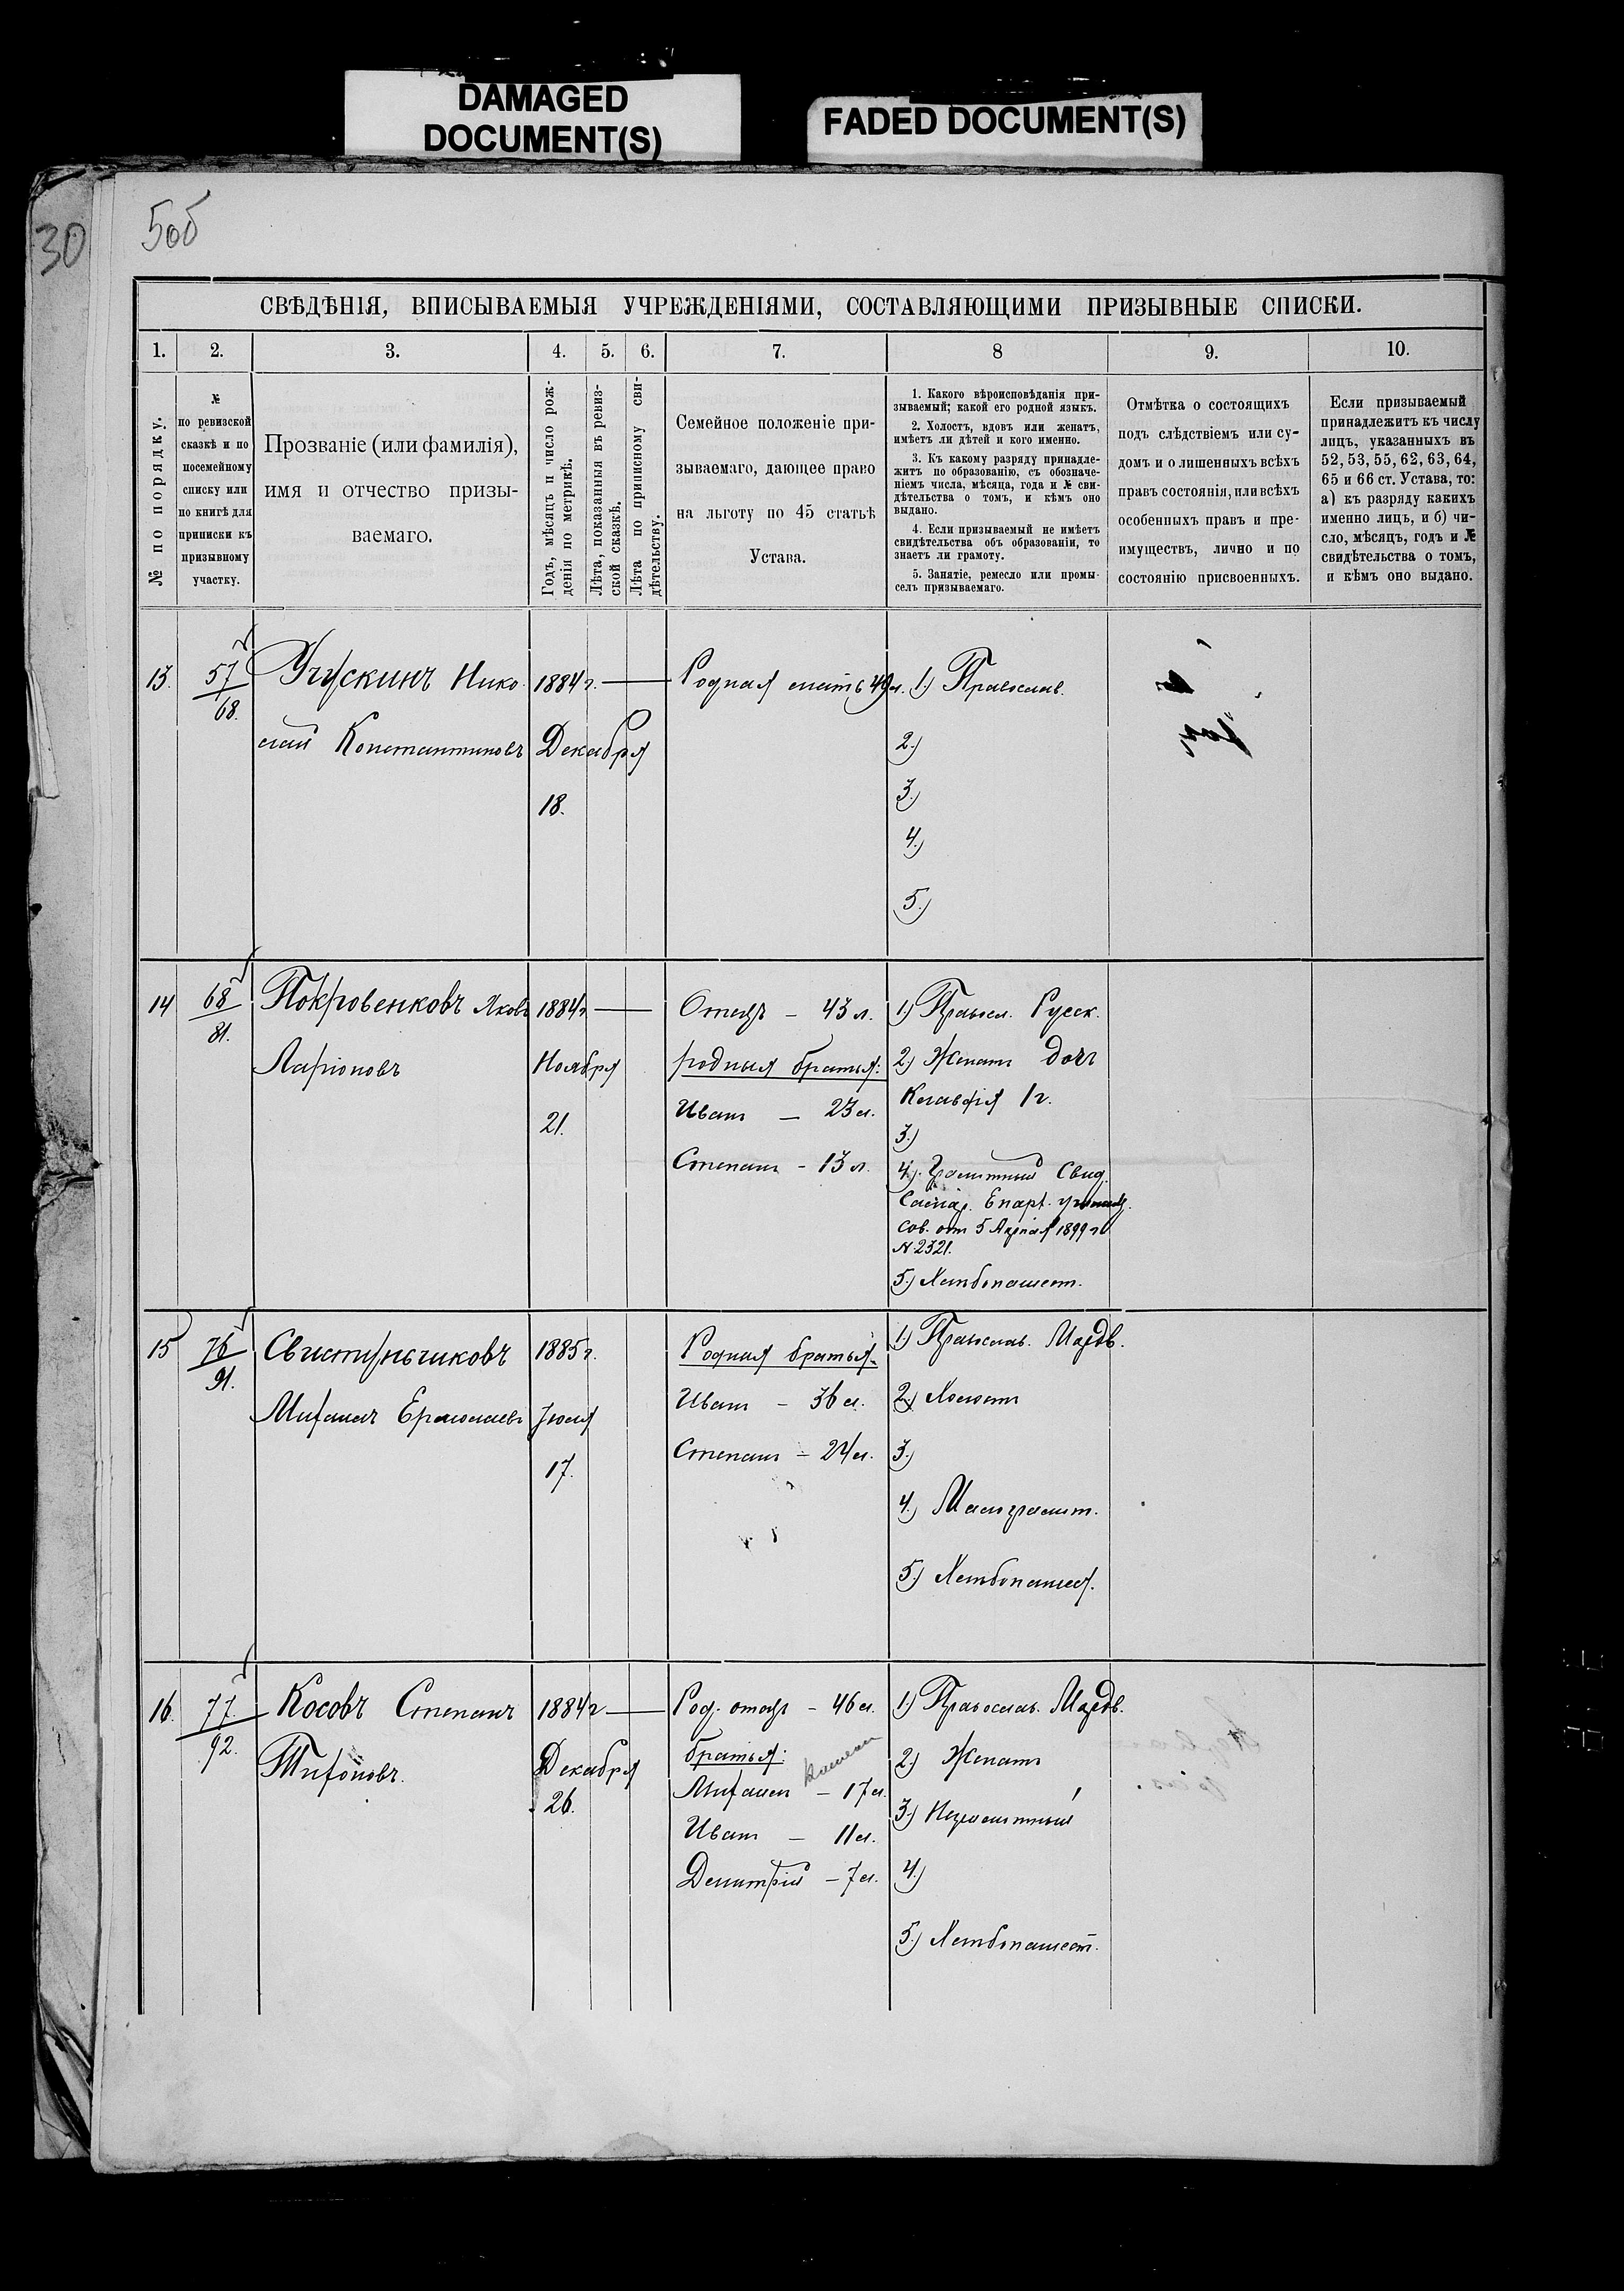 DAMAGED
DOCUMENT(S)
FADED DOCUMENT(S)
30
5об
СВѢДѢНІЯ, ВПИСЫВАЕМЫЯ УЧРЕЖДЕНІЯМИ, СОСТАВЛЯЮЩИМИ ПРИЗЫВНЫЕ СПИСКИ.
1. 2. 3. 4. 5. 6. 7. 8 9. 10.
№ по порядку.
№
по ревизской
сказкѣ и по
посемейному
списку или
по книгѣ для
приписки къ
призывному
участку.
Прозваніе (или фамилія),
имя и отчество призы-
ваемаго.
Годъ, мѣсяцъ и число рож-
денія по метрикѣ.
Лѣта, показанныя въ ревиз-
ской сказкѣ.
Лѣта по приписному сви-
дѣтельству.
Семейное положеніе при-
зываемаго, дающее право
на льготу по 45 статьѣ
Устава.
1. Какого вѣроисповѣданія при-
зываемый; какой его родной языкъ.
2. Холостъ, вдовъ или женатъ,
имѣетъ ли дѣтей и кого именно.
3. Къ какому разряду принадле-
житъ по образованію, съ обозначе-
ніемъ числа, мѣсяца, года и № сви-
дѣтельства о томъ, и кѣмъ оно
выдано.
4. Если призываемый не имѣетъ
свидѣтельства объ образованіи, то
знаетъ ли грамоту.
5. Занятіе, ремесло или промы-
селъ призываемаго.
Отмѣтка о состоящихъ
подъ слѣдствіемъ или су-
домъ и о лишенныхъ всѣхъ
правъ состоянія, или всѣхъ
особенныхъ правъ и пре-
имуществъ, лично и по
состоянію присвоенныхъ.
Если призываемый
принадлежитъ къ числу
лицъ, указанныхъ въ
52, 53, 55, 62, 63, 64,
65 и 66 ст. Устава, то:
а) къ разряду какихъ
именно лицъ, и б) чи-
сло, мѣсяцъ, годъ и №
свидѣтельства о томъ,
и кѣмъ оно выдано.
13. 57/68. Учускинъ Нико-
лай Константиновъ
1884 г.
Декабря
18.
Родная мать 49 л.
1) Православ.
2.)
3.)
4.)
5.)
14 68/81. Покровенковъ Яковъ
Ларіоновъ
1884 г
Ноября
21.
Отецъ – 43 л.
родныя братья:
Иванъ – 23 л.
Степанъ – 13 л.
1) Правосл. Русск.
2.) Женатъ дочь
Клавдія 1 г.
3.)
4.) Грамотный Свид.
Епарх. училищ.
Сов. отъ 5 Апрѣля 1899 г
№ 2321.
5.) Хлѣбопашест.
15 76/91. Свистульниковъ
Михаилъ Ермолаевъ
1885 г.
Іюля
17.
Родныя братья
Иванъ – 36 л.
Степанъ – 24 л.
1) Православ. Мордв.
2.) Холостъ
3.)
4.) Малограмот.
5.) Хлѣбопашест.
16. 77/92. Косовъ Степанъ
Тихоновъ.
1884 г
Декабря
26.
Род. отецъ – 46 л.
братья:
Михаилъ – 17 л.
Иванъ – 11 л.
Дмитрій – 7 л.
1.) Православ. Мордв.
2.) Женатъ
3.) Неграмотный
4.)
5.) Хлѣбопашест.